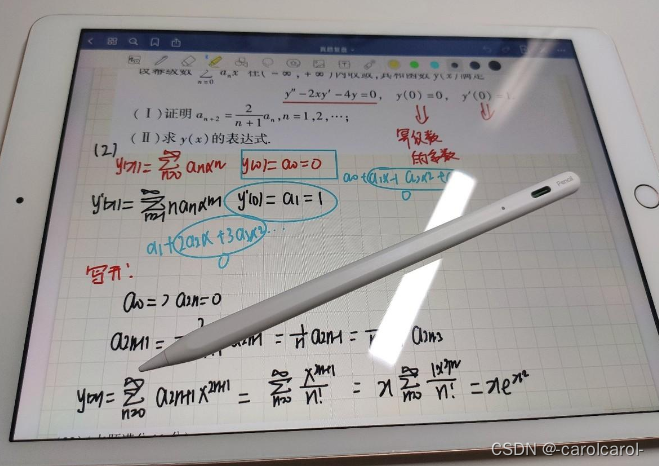 设幂级数 ∑ n=0 aₙx 在(-∞,+∞)内收敛,其和函数 y(x) 满足
y″-2xy′-4y=0, y(0)=0, y′(0)=1
(Ⅰ)证明 aₙ₊₂ = 2/(n+1) aₙ, n=1,2,…;
(Ⅱ)求 y(x)的表达式.
幂级数
的系数
(2)
y(x)= ∑ n=0 ∞ aₙxⁿ y(0)=a₀=0
a₀+a₁x+a₂x²+
0
y'(x)= ∑ n=1 ∞ naₙxⁿ⁻¹ y'(0)=a₁=1
a₁+2a₂x+3a₃x²...
0
写开:
a₀=> a₂ₙ=0
a₂ₙ₊₁= 2 a₂ₙ₋₁ = 1/n a₂ₙ₋₁ = a₂ₙ₋₃
y(x)= ∑ n=0 ∞ a₂ₙ₊₁x²ⁿ⁺¹ = ∑ n=0 ∞ x²ⁿ⁺¹/n! = x ∑ n=0 ∞ (x²)ⁿ/n! = xeˣ²
pencil
CSDN @-carolcarol-